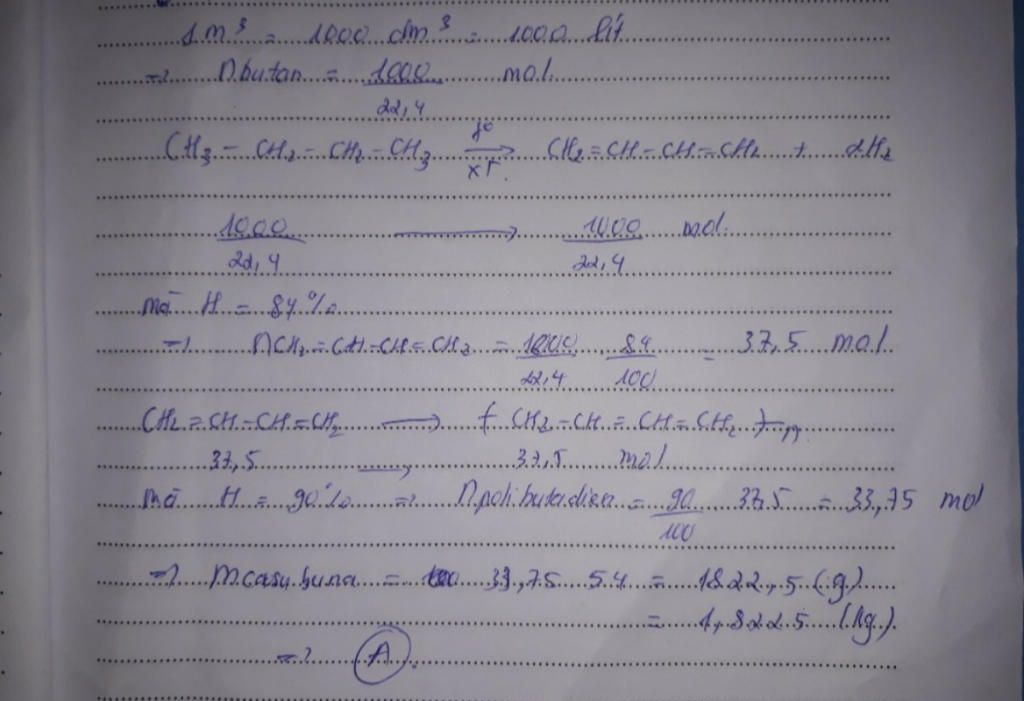 1 m³ = 1000 dm³ = 1000 lít
=> n butan = 1000/22,4 mol.
CH₃ - CH₂ - CH₂ - CH₃ —t°, xt→ CH₂ = CH - CH = CH₂ + 2H₂
1000/22,4 → 1000/22,4 mol.
mà H = 84 %
=> nCH₂ = CH - CH = CH₂ = 1000/22,4 . 84/100 = 37,5 mol.
CH₂ = CH - CH = CH₂ → ( CH₂ - CH = CH - CH₂ )n.
37,5 → 37,5 mol
mà H = 90% => n polibutadien = 90/100 . 37,5 = 33,75 mol
=> m casu buna = 33,75 . 54 = 1822,5 (g)
= 1,8225 (kg).
=> A.